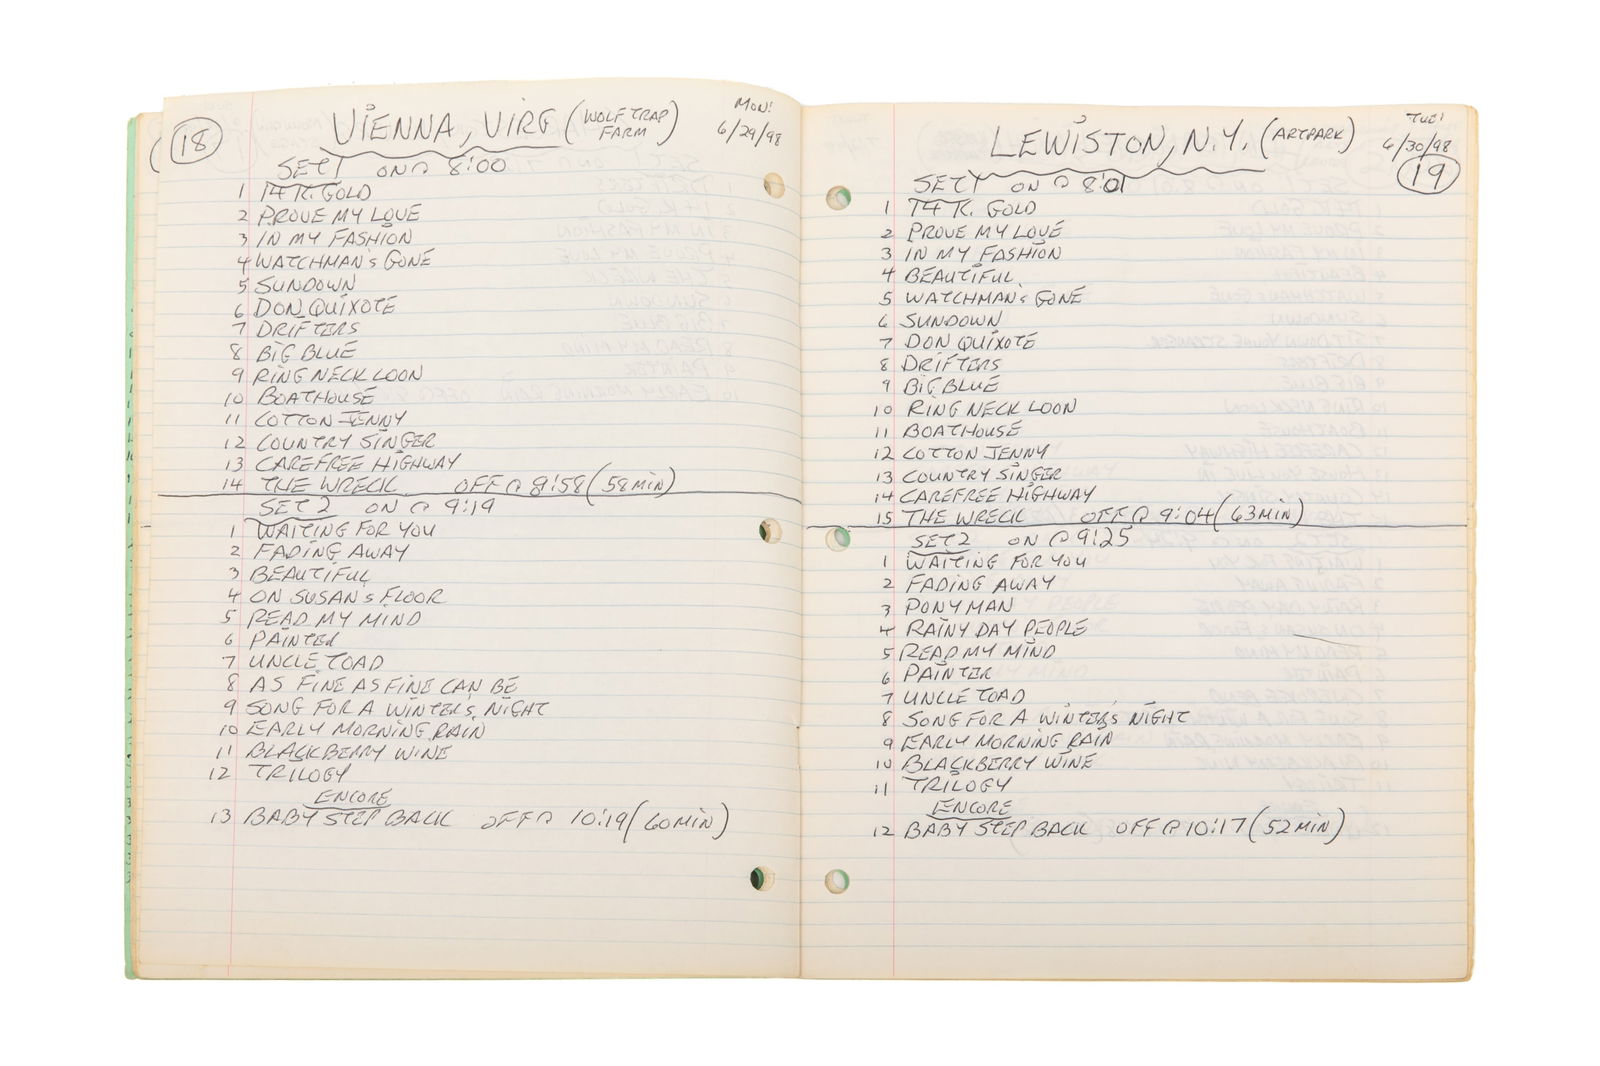 18
VIENNA, VIRG (WOLF TRAP FARM)
MON!
6/29/98
SET 1 ON @ 8:00
1 14 K. GOLD
2 PROVE MY LOVE
3 IN MY FASHION
4 WATCHMAN'S GONE
5 SUNDOWN
6 DON QUIXOTE
7 DRIFTERS
8 BIG BLUE
9 RING NECK LOON
10 BOATHOUSE
11 COTTON JENNY
12 COUNTRY SINGER
13 CAREFREE HIGHWAY
14 THE WRECK OFF @ 8:58 (58 MIN)
SET 2 ON @ 9:19
1 WAITING FOR YOU
2 FADING AWAY
3 BEAUTIFUL
4 ON SUSAN'S FLOOR
5 READ MY MIND
6 PAINTER
7 UNCLE TOAD
8 AS FINE AS FINE CAN BE
9 SONG FOR A WINTER'S NIGHT
10 EARLY MORNING RAIN
11 BLACKBERRY WINE
12 TRILOGY
ENCORE
13 BABY STEP BACK OFF @ 10:19 (60 MIN)
LEWISTON, N.Y. (ARTPARK)
TUE!
6/30/98
19
SET 1 ON @ 8:01
1 14 K. GOLD
2 PROVE MY LOVE
3 IN MY FASHION
4 BEAUTIFUL
5 WATCHMAN'S GONE
6 SUNDOWN
7 DON QUIXOTE
8 DRIFTERS
9 BIG BLUE
10 RING NECK LOON
11 BOATHOUSE
12 COTTON JENNY
13 COUNTRY SINGER
14 CAREFREE HIGHWAY
15 THE WRECK OFF @ 9:04 (63 MIN)
SET 2 ON @ 9:25
1 WAITING FOR YOU
2 FADING AWAY
3 PONY MAN
4 RAINY DAY PEOPLE
5 READ MY MIND
6 PAINTER
7 UNCLE TOAD
8 SONG FOR A WINTER'S NIGHT
9 EARLY MORNING RAIN
10 BLACKBERRY WINE
11 TRILOGY
ENCORE
12 BABY STEP BACK OFF @ 10:17 (52 MIN)